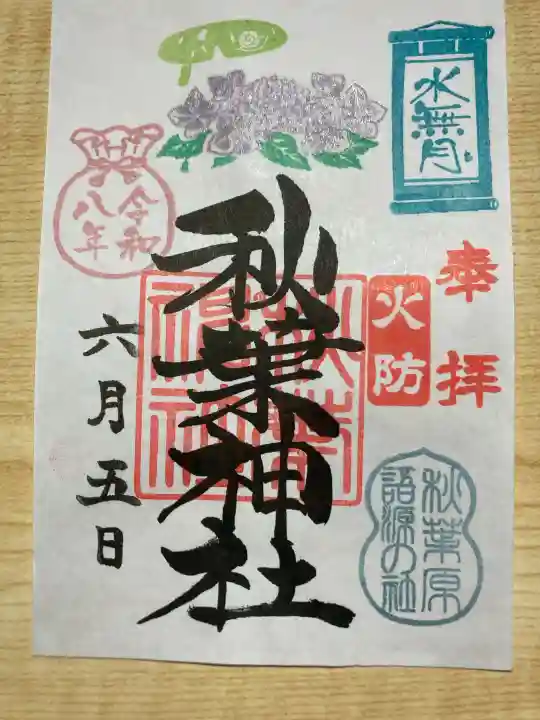 水無月
奉拝
火防
秋葉原
語源の社
秋葉神社
令和
八年
六月五日